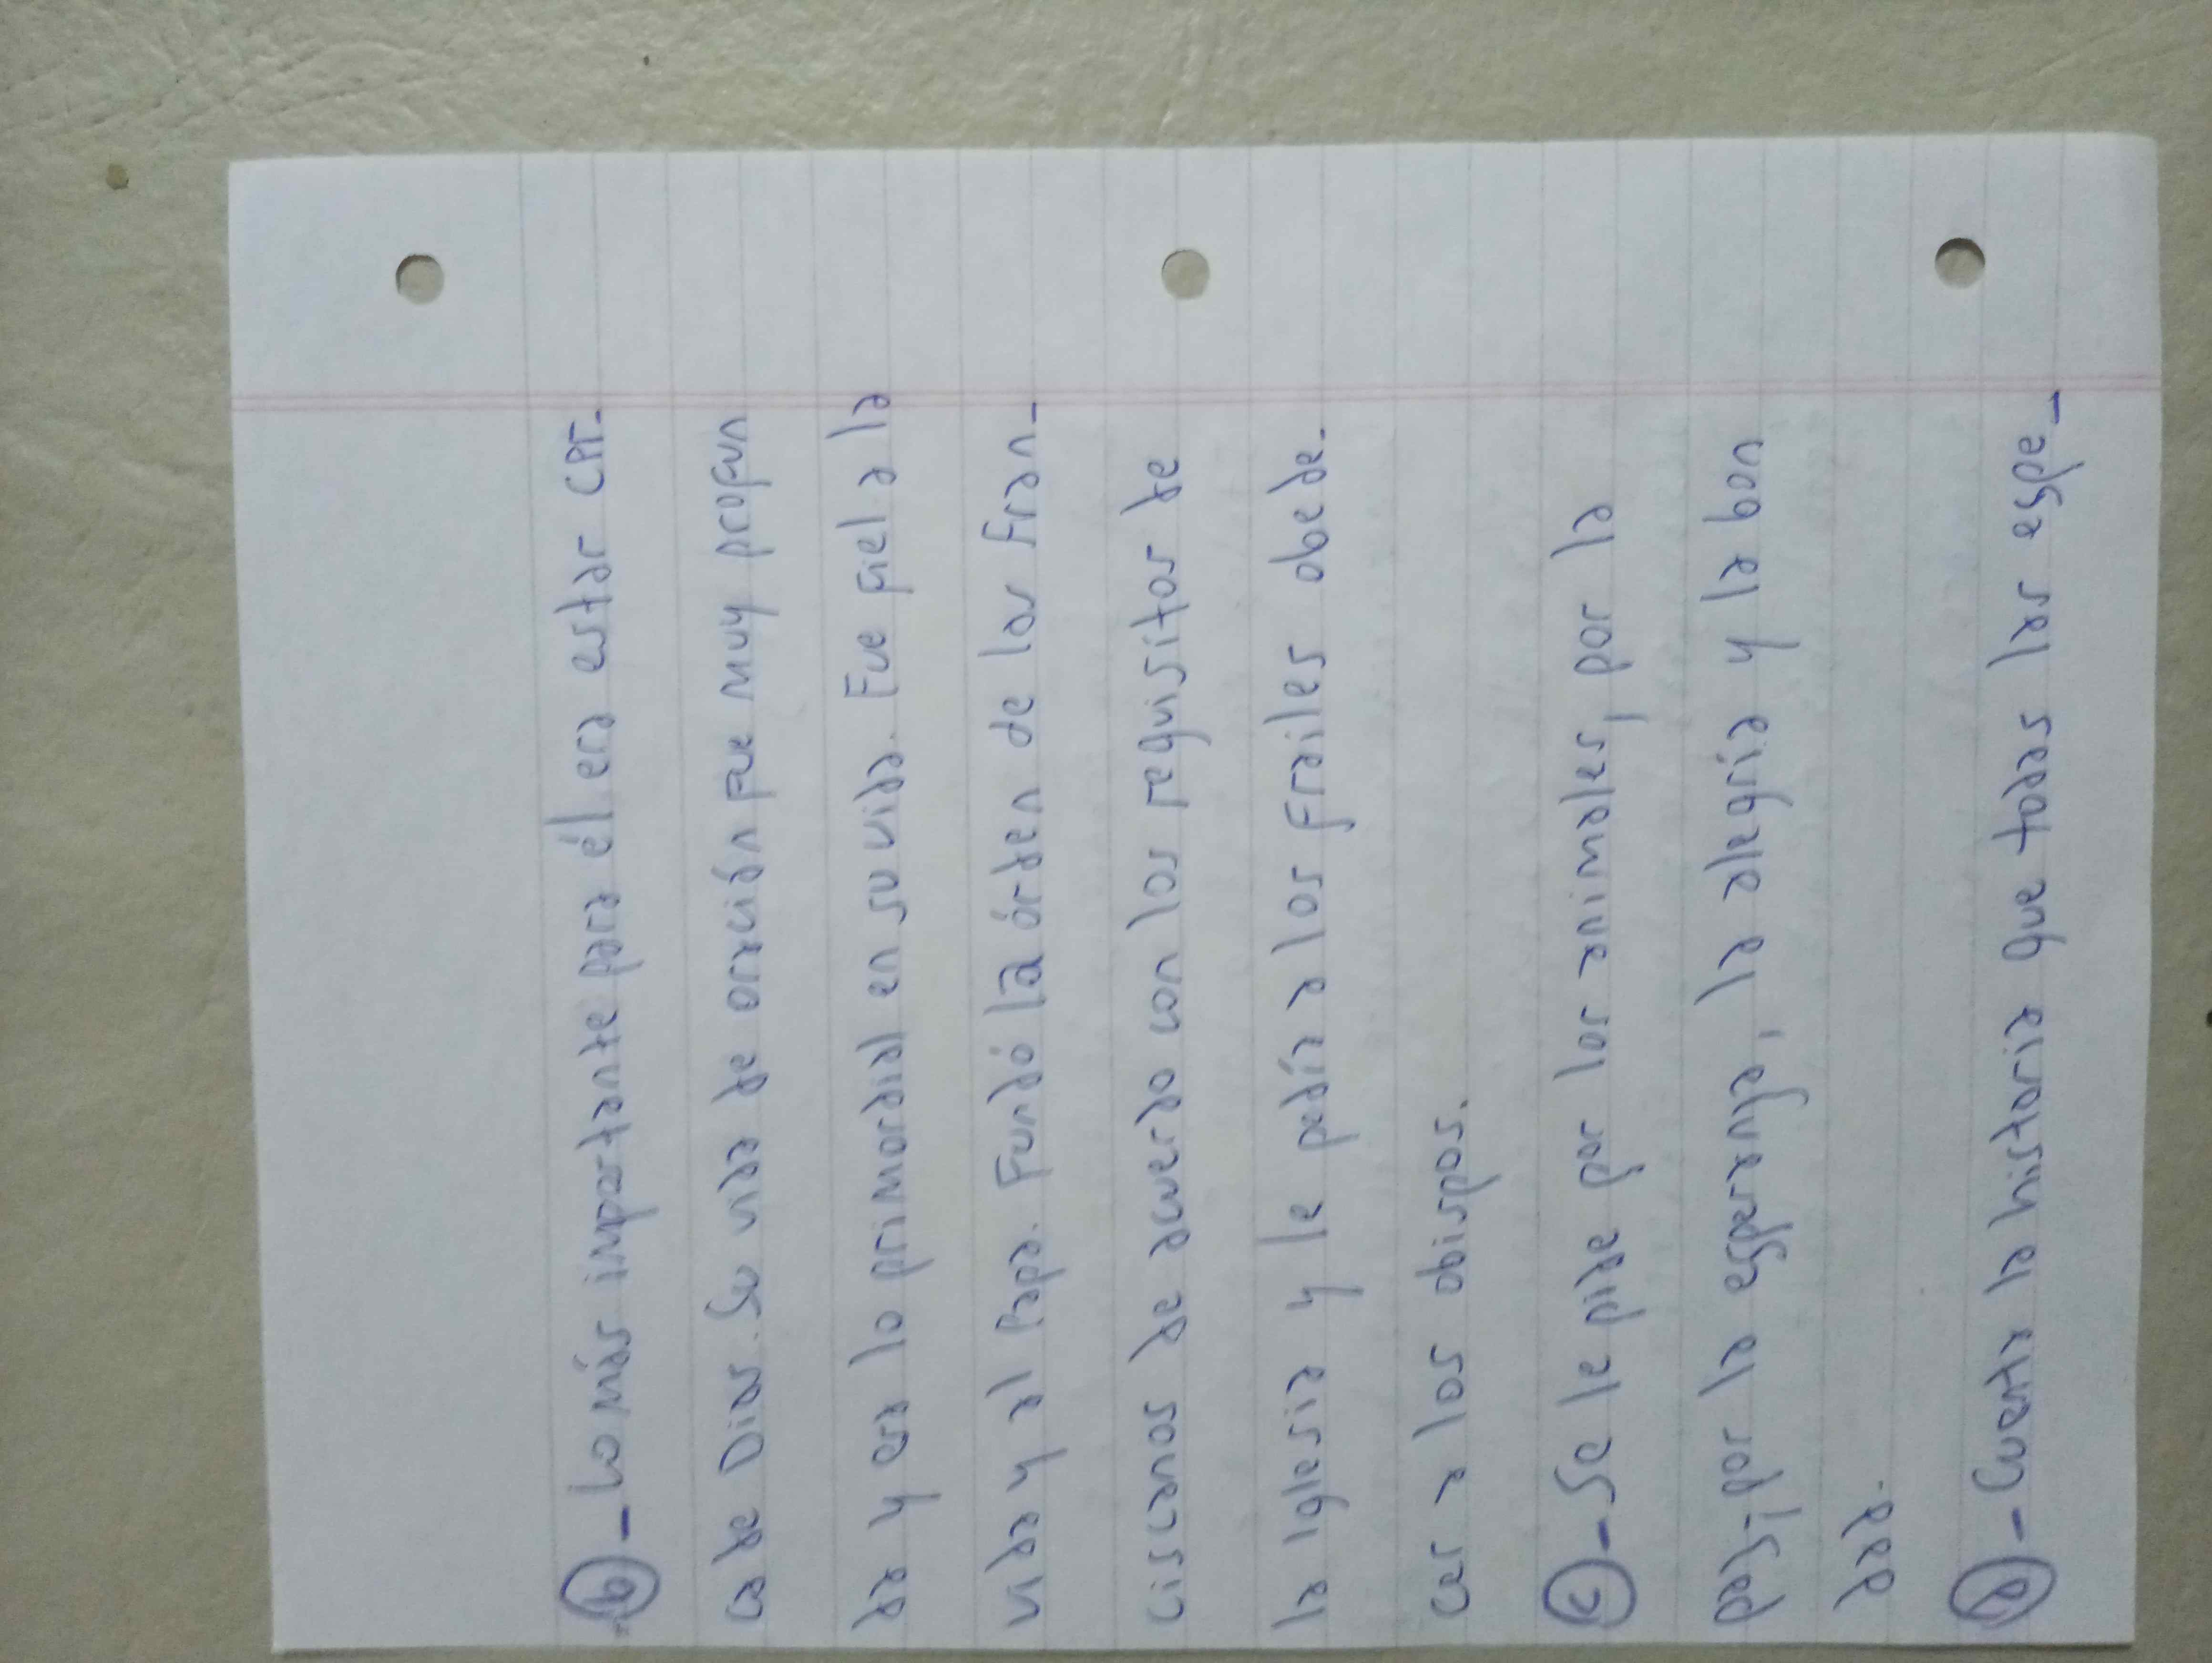 6 - Lo más importante para él era estar cer-
ca de Dios. Su vida de oración fue muy profun
da y era lo primordial en su vida. Fue fiel a la
vida y al Papa. Fundó la órden de los Fran-
ciscanos de acuerdo con los requisitos de
la iglesia y le pedía a los frailes obede-
cer a los obispos.
7 - Se le pide por los animales, por la
paz, por la esperanza, la alegría y la bon
dad.
8 - Cuenta la historia que todas las espe-